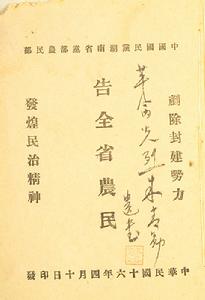 中國國民黨湖南省黨部農民部
剷除封建勢力
革命先烈
遺
告全省農民
發煌民治精神
中華民國十六年四月十日印發